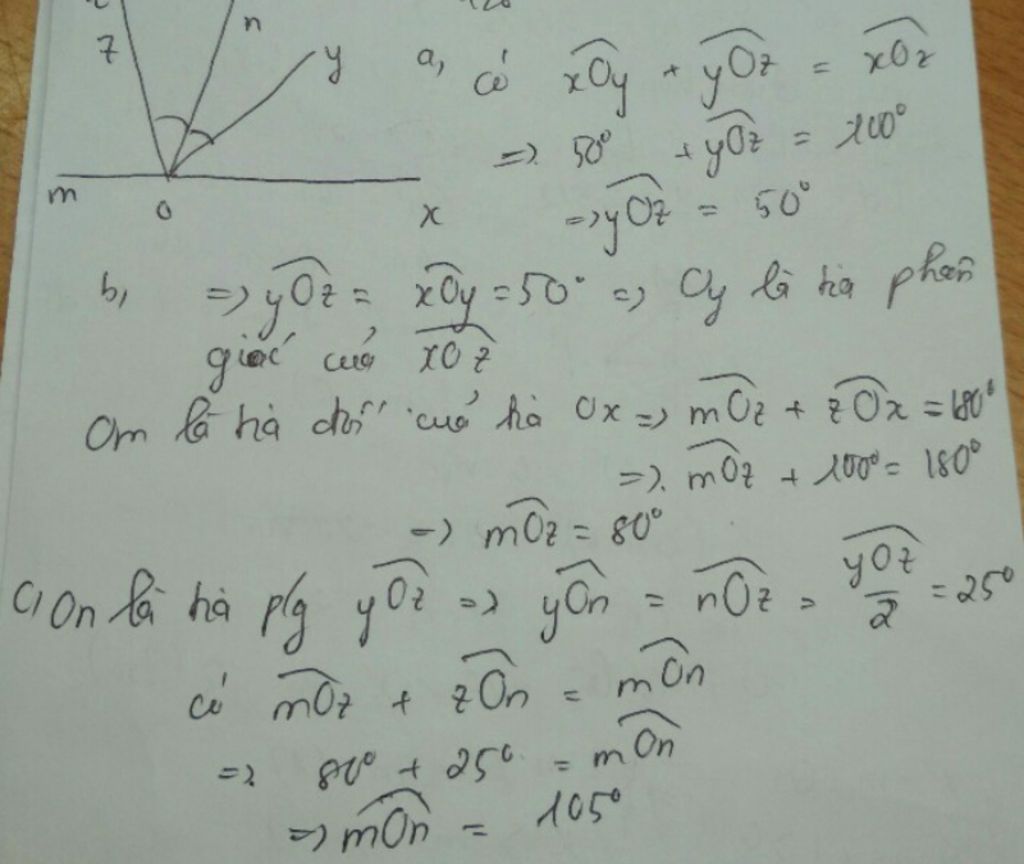 z
n
y
m
O
x
a, có xOy + yOz = xOz
=> 50° + yOz = 100°
=> yOz = 50°
b, => yOz = xOy = 50° => Oy là tia phân
giác của xOz
Om là tia đối của tia Ox => mOz + zOx = 180°
=> mOz + 100° = 180°
=> mOz = 80°
c, On là tia p/g yOz => yOn = nOz = yOz/2 = 25°
có mOz + zOn = mOn
=> 80° + 25° = mOn
=> mOn = 105°